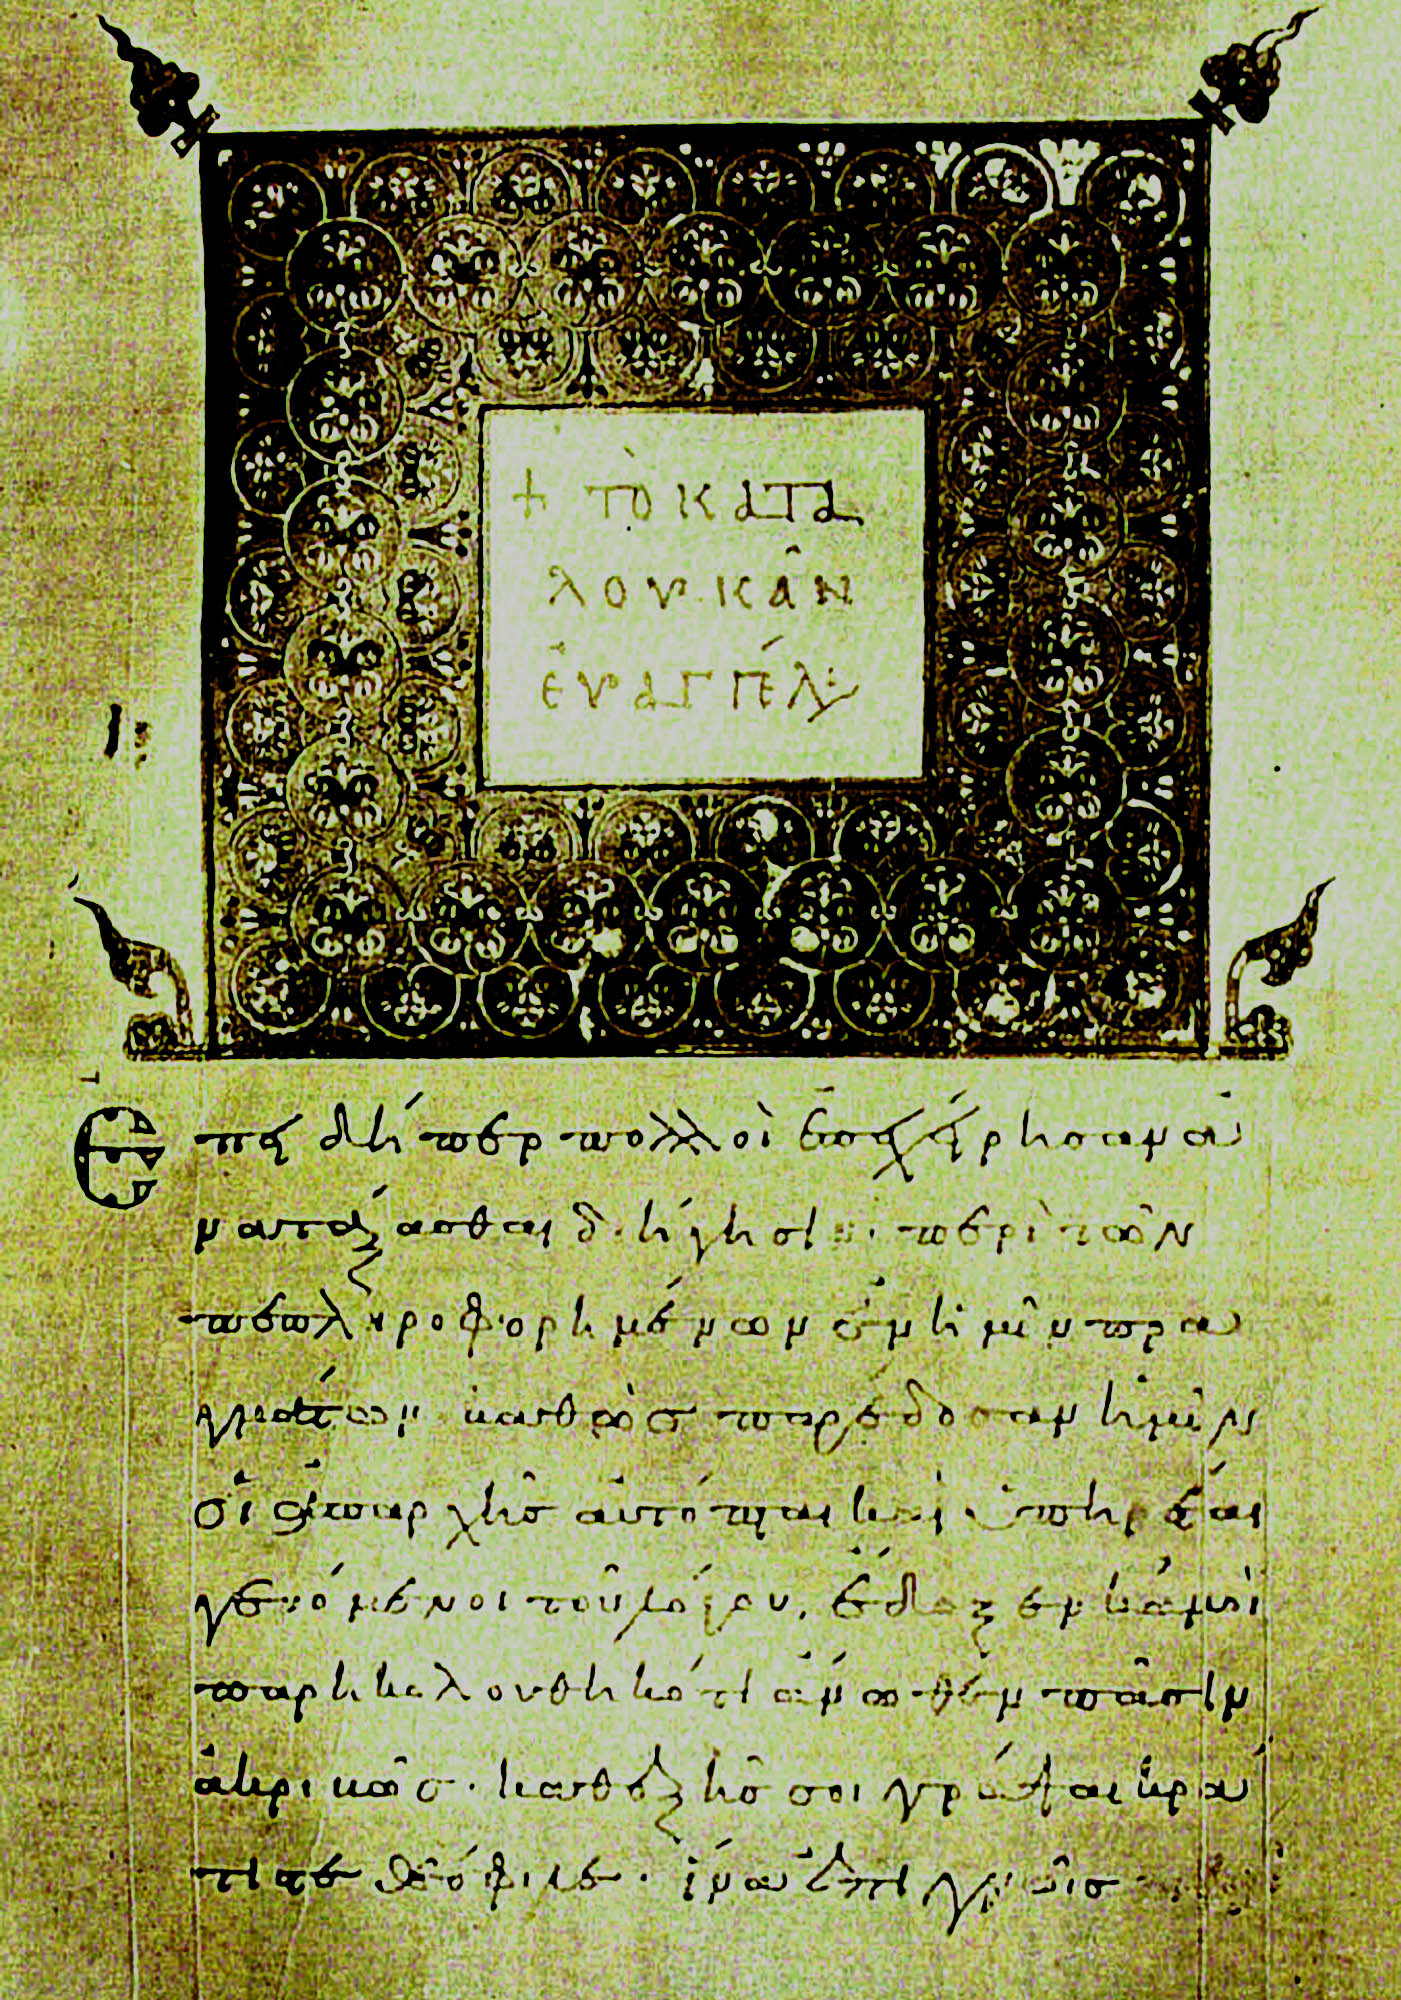 + τὸ κατα
λουκᾶν
ἐυαγγέλ
Ἐπειδήπερ πολλοὶ ἐπεχείρησαν ἀ
νατάξασθαι διήγησιν· περὶ τῶν
πεπληροφορημένων ἐν ἡμῖν πρα
γμάτων· καθὼς παρέδοσαν ἡμῖν
οἱ ἀπαρχῆς αὐτόπται καὶ ὑπηρέται
γενόμενοι τοῦ λόγου, ἔδοξεν κἀμοὶ
παρηκολουθηκότι ἄνωθεν πᾶσιν
ἀκριβῶς· καθεξῆς σοι γράψαι κρά
τιστε θεόφιλε· ἵνα ἐπιγνῷς